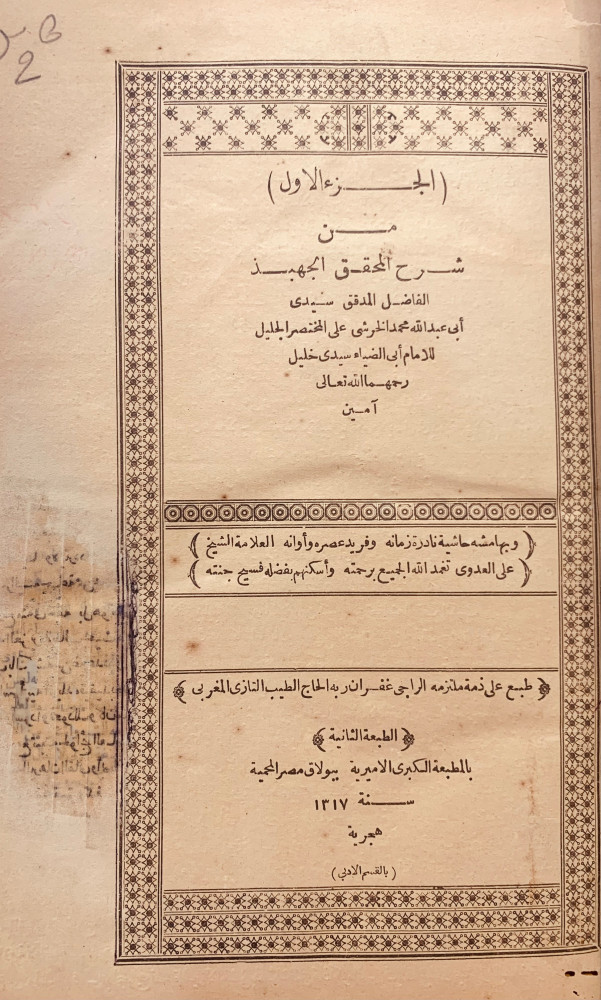 2
(الجـــزء الاول)
مـــن
شـــرح المحقـق الجهبـــذ
الفاضـل المدقق سـيدى
أبى عبدالله محمد الخرشى على المختصر الجليل
للامام أبى الضياء سيدى خليل
رحمهـما الله تعـالى
آمـين
(وبهامشه حاشية نادرة زمانه وفريد عصره وأوانه العلامة الشيخ)
(على العدوى تغمد الله الجميع برحمته وأسكنهم بفضله فسيح جنته)
﴿طبع على ذمة ملتزمه الراجى غفـران ربه الحاج الطيب التازى المغربى﴾
﴿الطبعة الثانية﴾
بالمطبعة الكبرى الاميرية ببولاق مصر المحمية
ســـنة ١٣١٧
هجرية
(بالقسم الادبى)